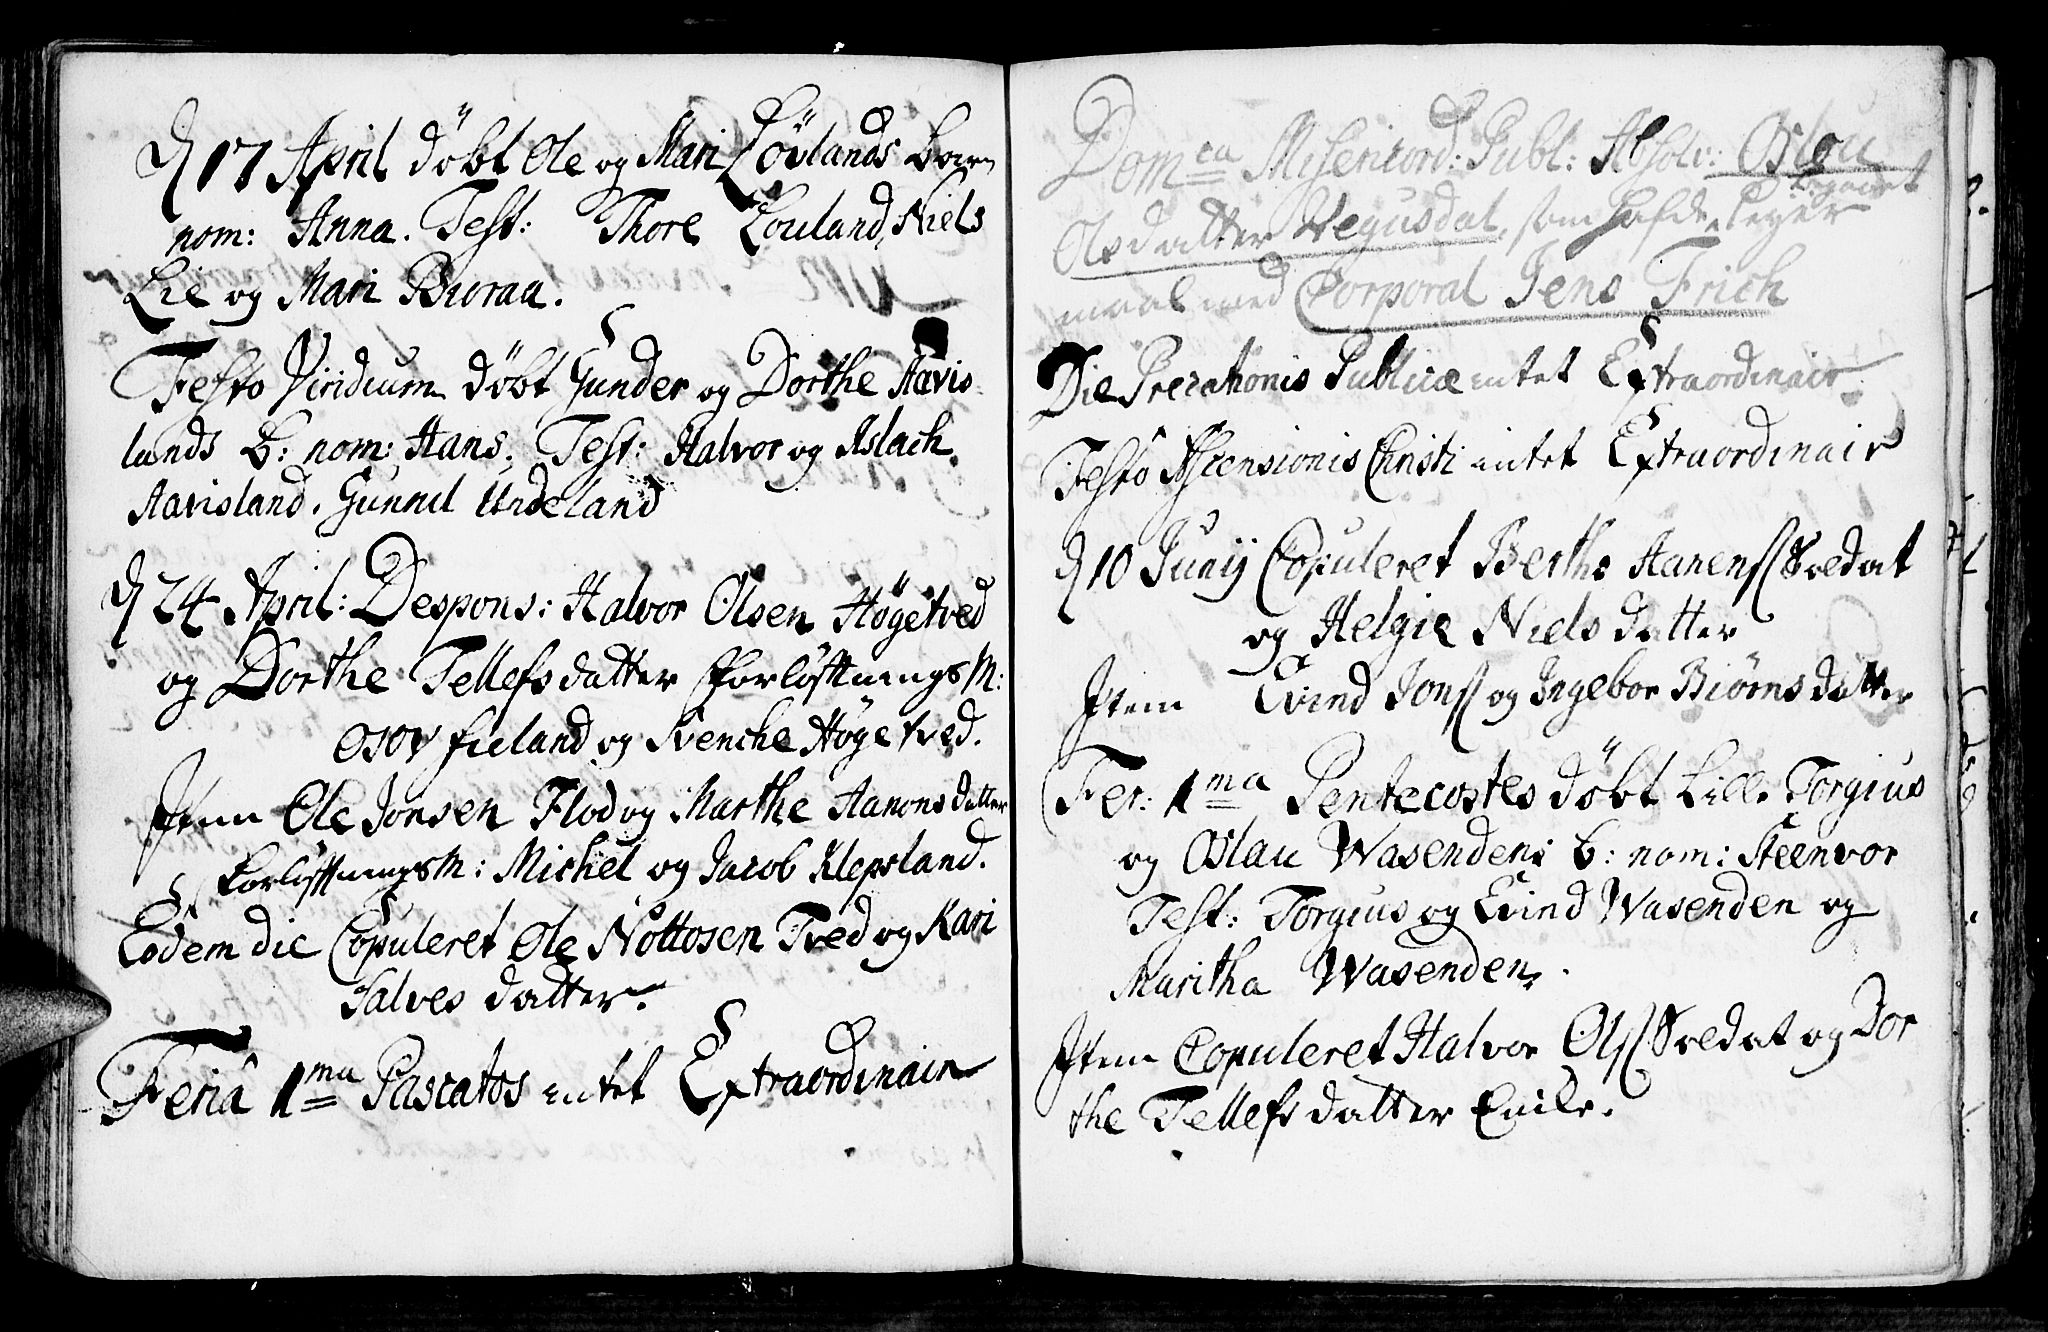 D 17 April döbt Ole og Mari Lövlands Barn
nom: Anna. Test: Thore Louland, Niels
Lie og Mari Buraa.
Festo Viridium döbt Gunder og Dorthe Aavis
lands B: nom: Hans. Test: Halvor og Aslach
Aavisland. Gunnil Undeland
D 24 April: Despons: Halvor Olsen Högetved
og Dorthe Tellefsdatter Forlöftnings M:
Osov fieland og Svenche Högetved.
Item Ole Jonsen Flod og Marthe Aanonsdatter
Forlöftnings M: Michel og Jacob Klepsland.
Eodem die Copuleret Ole Nottosen Tved og Kari
Salves datter.
Feria 1ma Pascatos intet Extraordinair
Domca Misericord: Publ: Absolv: Oslou
Olsdatter Vegusdal, som hafde begaaet leyer
maal med Corporal Jens Frich
Die Precationis Publicæ intet Extraordinair
Festo Ascensionis Christi intet Extraordinair
D 10 Junij Copuleret Berthe Aanens Soldat
og Helgie Niels datter
Item Evind Jons og Ingebor Biörns datter
Fer: 1ma Pentecostes döbt Lille Torgius
og Oslau Wasendens b: nom: Steenvor
Test: Torgius og Evind Wasenden og
Maritha Wasenden.
Item Copuleret Halvor Ols Soldat og Dor
the Tellefs datter